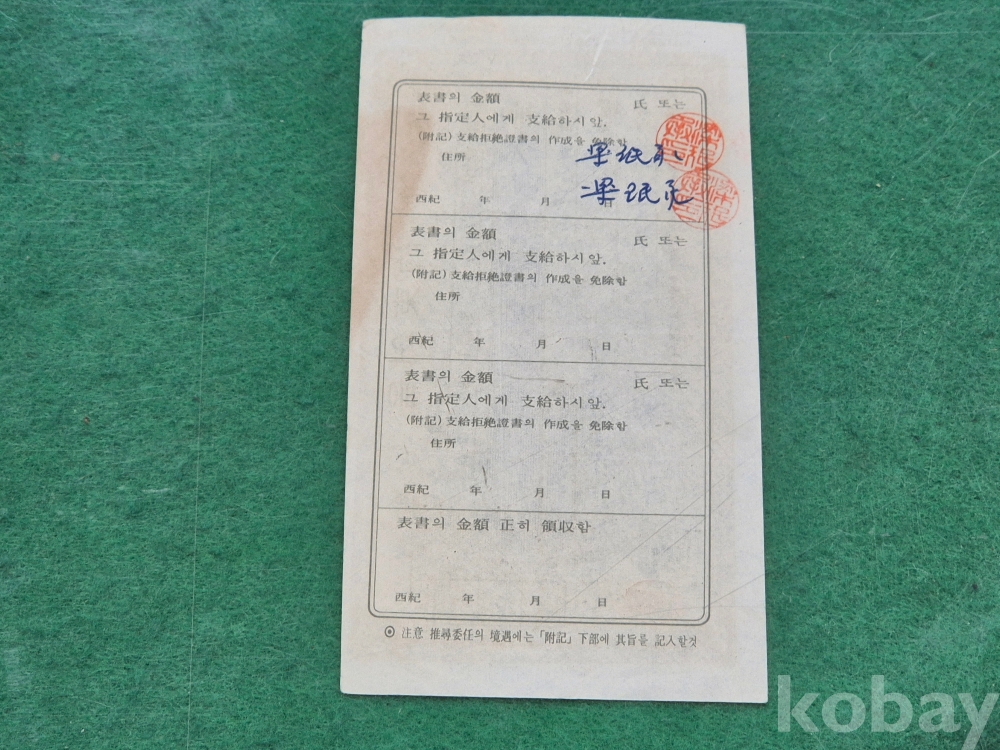 表書의 金額
氏 또는
그 指定人에게 支給하시앞.
(附記)支給拒絶證書의 作成을 免除함
住所
西紀 年 月 日
表書의 金額
氏 또는
그 指定人에게 支給하시앞.
(附記)支給拒絶證書의 作成을 免除함
住所
西紀 年 月 日
表書의 金額
氏 또는
그 指定人에게 支給하시앞.
(附記)支給拒絶證書의 作成을 免除함
住所
西紀 年 月 日
表書의 金額 正히 領収함
西紀 年 月 日
◉ 注意 推尋委任의 境遇에는「附記」下部에 其旨를 記入할것
kobay